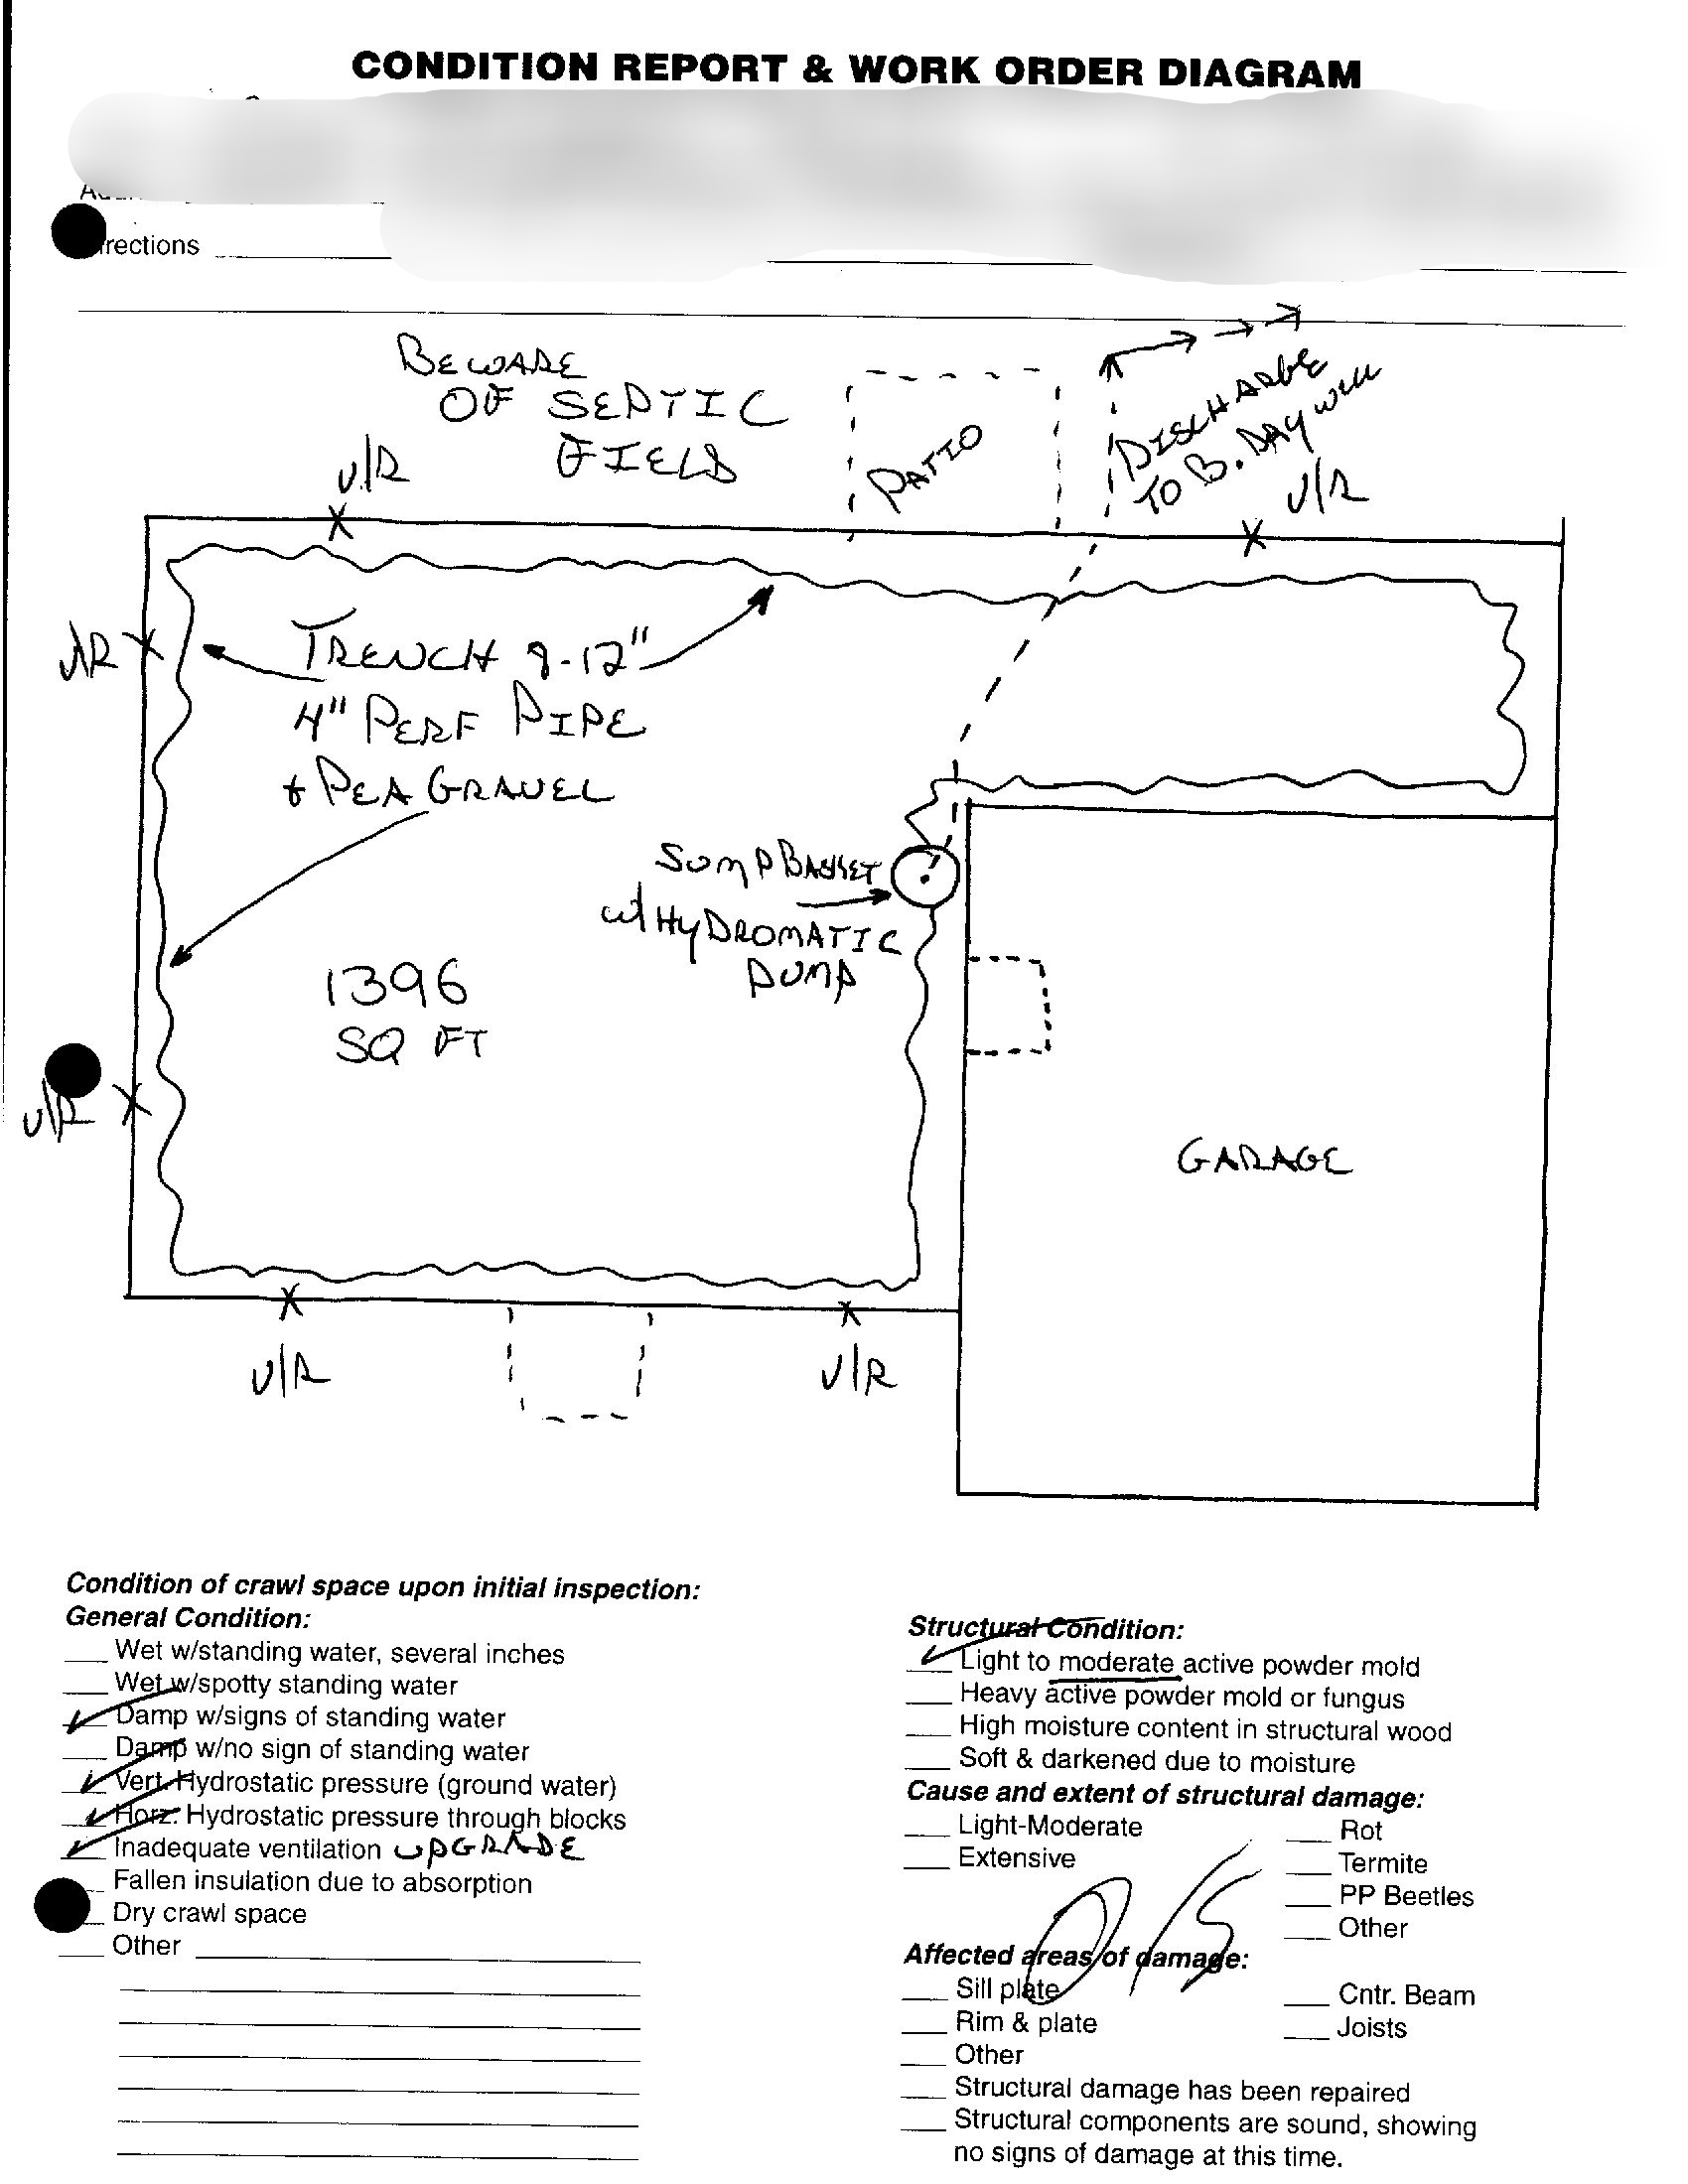 CONDITION REPORT & WORK ORDER DIAGRAM
rections
BEWARE
OF SEPTIC
FIELD
V/R
PATIO
DISCHARGE
TO B. DAY WELL
V/R
V/R
TRENCH 9-12"
4" PERF PIPE
+ PEA GRAVEL
SUMP BASKET
W/ HYDROMATIC
PUMP
1396
SQ FT
V/R
GARAGE
V/R
V/R
Condition of crawl space upon initial inspection:
General Condition:
Wet w/standing water, several inches
Wet w/spotty standing water
Damp w/signs of standing water
Damp w/no sign of standing water
Vert. Hydrostatic pressure (ground water)
Horz. Hydrostatic pressure through blocks
Inadequate ventilation UPGRADE
Fallen insulation due to absorption
Dry crawl space
Other
Structural Condition:
Light to moderate active powder mold
Heavy active powder mold or fungus
High moisture content in structural wood
Soft & darkened due to moisture
Cause and extent of structural damage:
Light-Moderate
Rot
Extensive
Termite
PP Beetles
Other
Affected areas of damage:
Sill plate
Cntr. Beam
Rim & plate
Joists
Other
Structural damage has been repaired
Structural components are sound, showing
no signs of damage at this time.